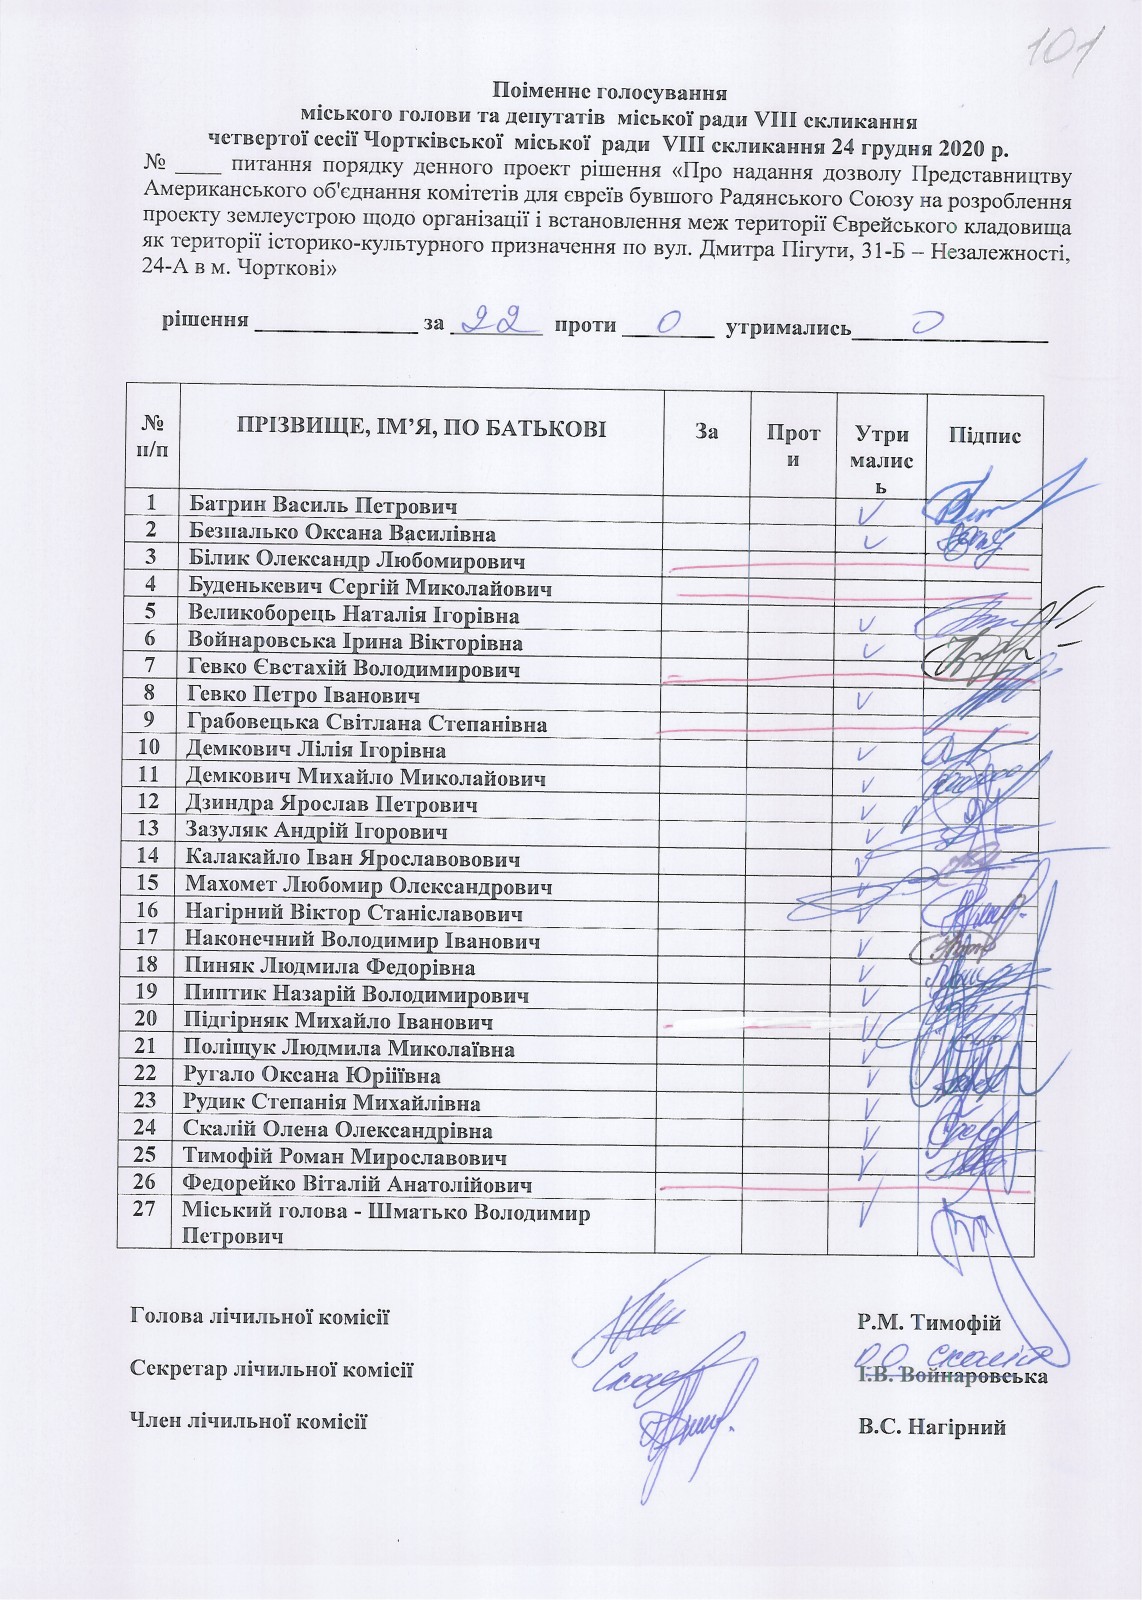 101
Поіменне голосування
міського голови та депутатів міської ради VIII скликання
четвертої сесії Чортківської міської ради VIII скликання 24 грудня 2020 р.
№ ____ питання порядку денного проект рішення «Про надання дозволу Представництву
Американського об'єднання комітетів для євреїв бувшого Радянського Союзу на розроблення
проекту землеустрою щодо організації і встановлення меж території Єврейського кладовища
як території історико-культурного призначення по вул. Дмитра Пігути, 31-Б – Незалежності,
24-А в м. Чорткові»
рішення ______________ за 22 проти 0 утримались 0
№ п/п ПРІЗВИЩЕ, ІМ’Я, ПО БАТЬКОВІ За Проти Утрималась Підпис
1 Батрин Василь Петрович
2 Безпалько Оксана Василівна
3 Білик Олександр Любомирович
4 Буденькевич Сергій Миколайович
5 Великоборець Наталія Ігорівна
6 Войнаровська Ірина Вікторівна
7 Гевко Євстахій Володимирович
8 Гевко Петро Іванович
9 Грабовецька Світлана Степанівна
10 Демкович Лілія Ігорівна
11 Демкович Михайло Миколайович
12 Дзиндра Ярослав Петрович
13 Зазуляк Андрій Ігорович
14 Калакайло Іван Ярославовович
15 Махомет Любомир Олександрович
16 Нагірний Віктор Станіславович
17 Наконечний Володимир Іванович
18 Пиняк Людмила Федорівна
19 Пиптик Назарій Володимирович
20 Підгірняк Михайло Іванович
21 Поліщук Людмила Миколаївна
22 Ругало Оксана Юріїївна
23 Рудик Степанія Михайлівна
24 Скалій Олена Олександрівна
25 Тимофій Роман Мирославович
26 Федорейко Віталій Анатолійович
27 Міський голова - Шматько Володимир
Петрович
Голова лічильної комісії Р.М. Тимофій
О.О. Скалій
Секретар лічильної комісії І.В. Войнаровська
Член лічильної комісії В.С. Нагірний